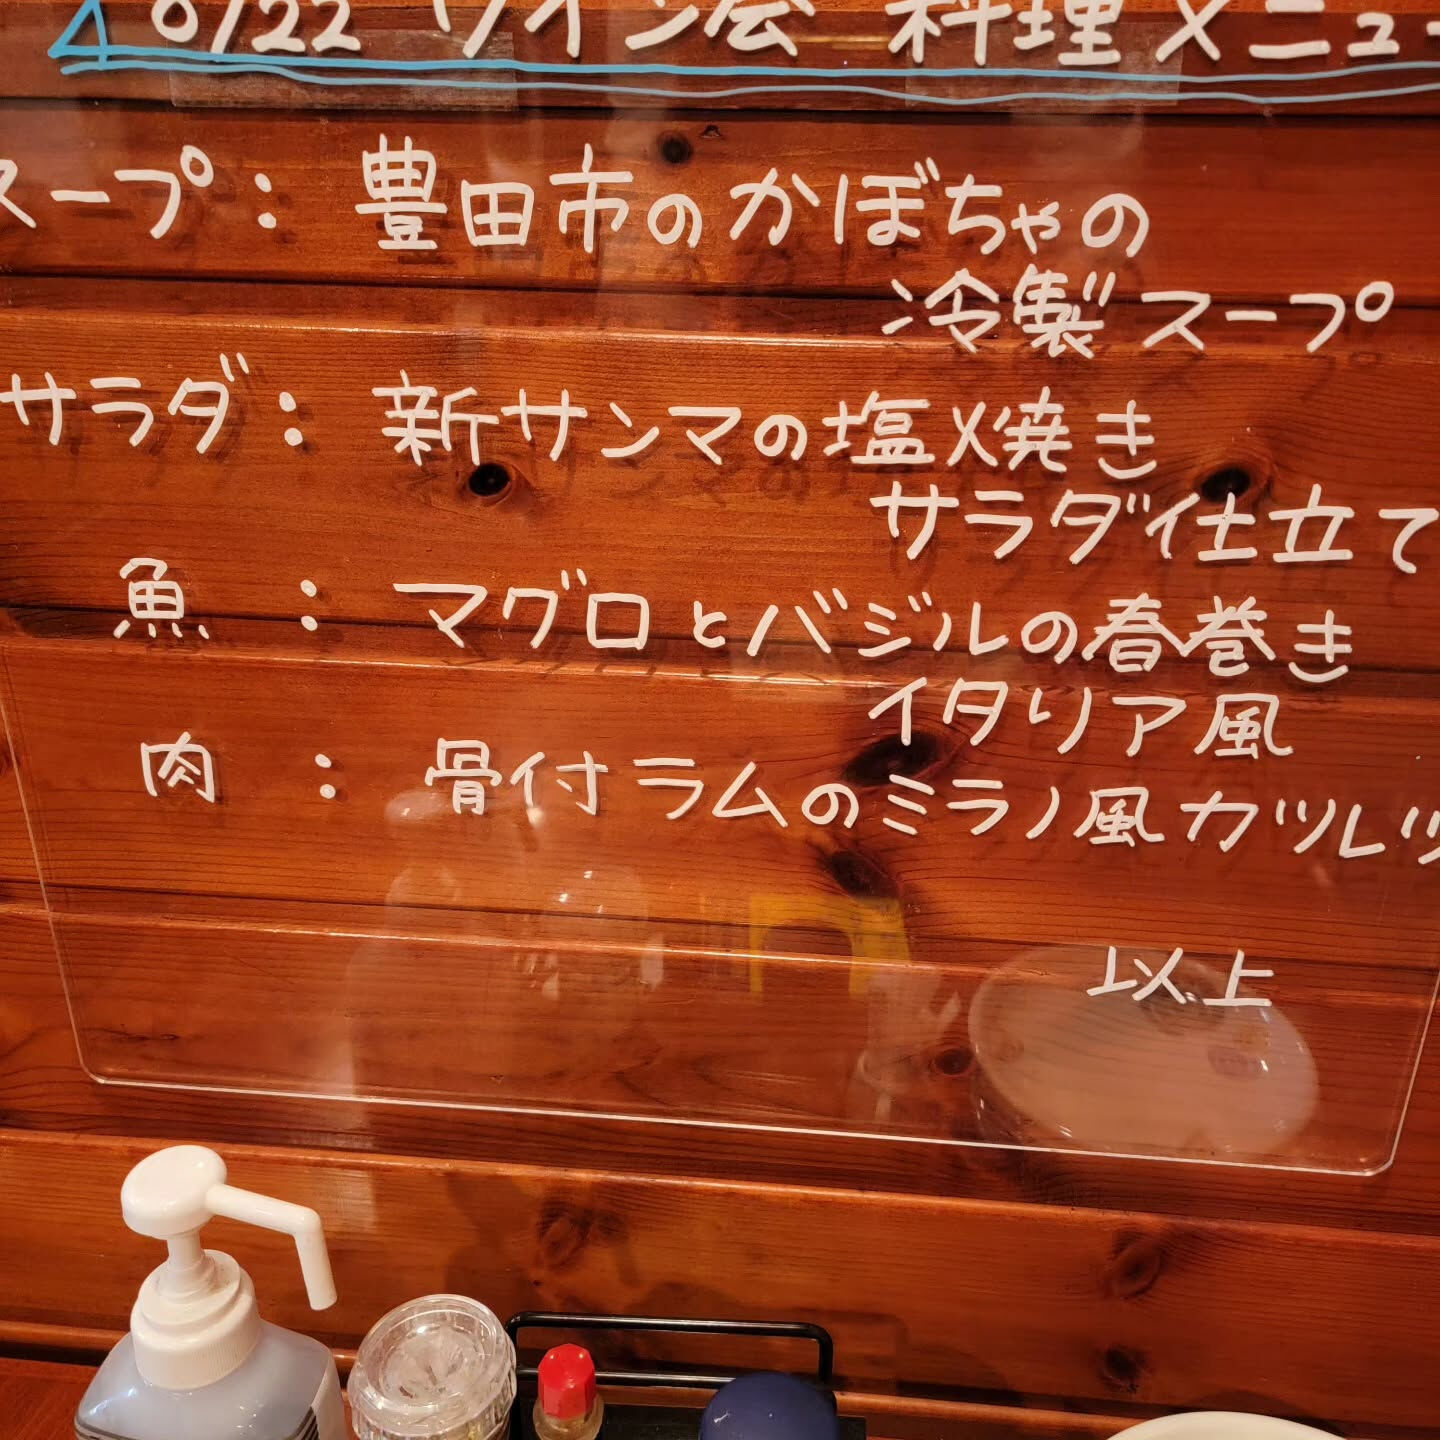 8/22 ワイン会 料理メニュー
スープ： 豊田市のかぼちゃの
冷製スープ
サラダ： 新サンマの塩焼き
サラダ仕立て
魚 ： マグロとバジルの春巻き
イタリア風
肉 ： 骨付ラムのミラノ風カツレツ
以上